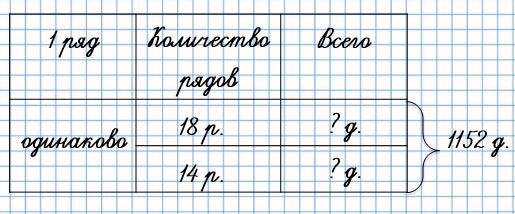 1 ряд Количество рядов Всего
одинаково 18 р. ? д. 1152 д.
14 р. ? д.